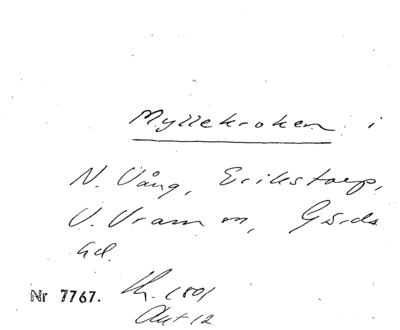 Myllekroken i
N. Vång, Erikstorp,
V. Vram m, Gärds
hd.
Nr 7767.
1801
Akt 12